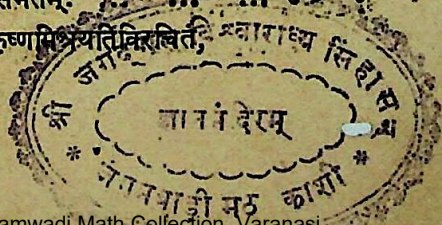 कृष्णमिश्रयतिविरचितं,
श्री जगद्गुरु विश्वाराध्य सिंहासन
ज्ञानमंदिरम्
* जंगमवाडी मठ काशी *
amwadi Math Collection, Varanasi